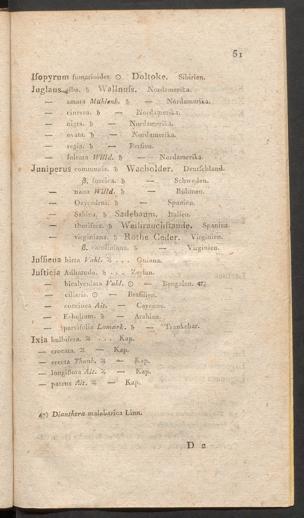 51
Isopyrum fumarioides. ⊙ Doltoke. Sibirien.
Juglans alba. ♄ Wallnuss. Nordamerika.
— amara Mühlenb. ♄ — Nordamerika.
— cinerea. ♄ — Nordamerika.
— nigra. ♄ — Nordamerika.
— ovata. ♄ — Nordamerika.
— regia. ♄ — Persien.
— sulcata Willd. ♄ — Nordamerika.
Juniperus communis. ♄ Wacholder. Deutschland.
β. suecica. ♄ — Schweden.
— nana Willd. ♄ — Böhmen.
— Oxycedrus. ♄ — Spanien.
— Sabina. ♄ Sadebaum. Italien.
— thurifera. ♄ Weihrauchstaude. Spanien.
— virginiana. ♄ Rothe Ceder. Virginien.
β. caroliniana. ♄ — Virginien.
Jussieua hirta Vahl. ♃ . . . Guiana.
Justicia Adhatoda. ♄ . . . Zeylon.
— bicalyculata Vahl. ⊙ — Bengalen. 47)
— ciliaris. ⊙ — Brasilien.
— coccinea Ait. — Cayenne.
— Ecbolium. ♄ — Arabien.
— parvifolia Lamark. ♄ — Trankebar.
Ixia bulbifera. ♃ . . . Kap.
— crocata. ♃ — Kap.
— erecta Thunb. ♃ — Kap.
— longiflora Ait. ♃ — Kap.
— patens Ait. ♃ — Kap.
47) Dianthera malabarica Linn.
D 2